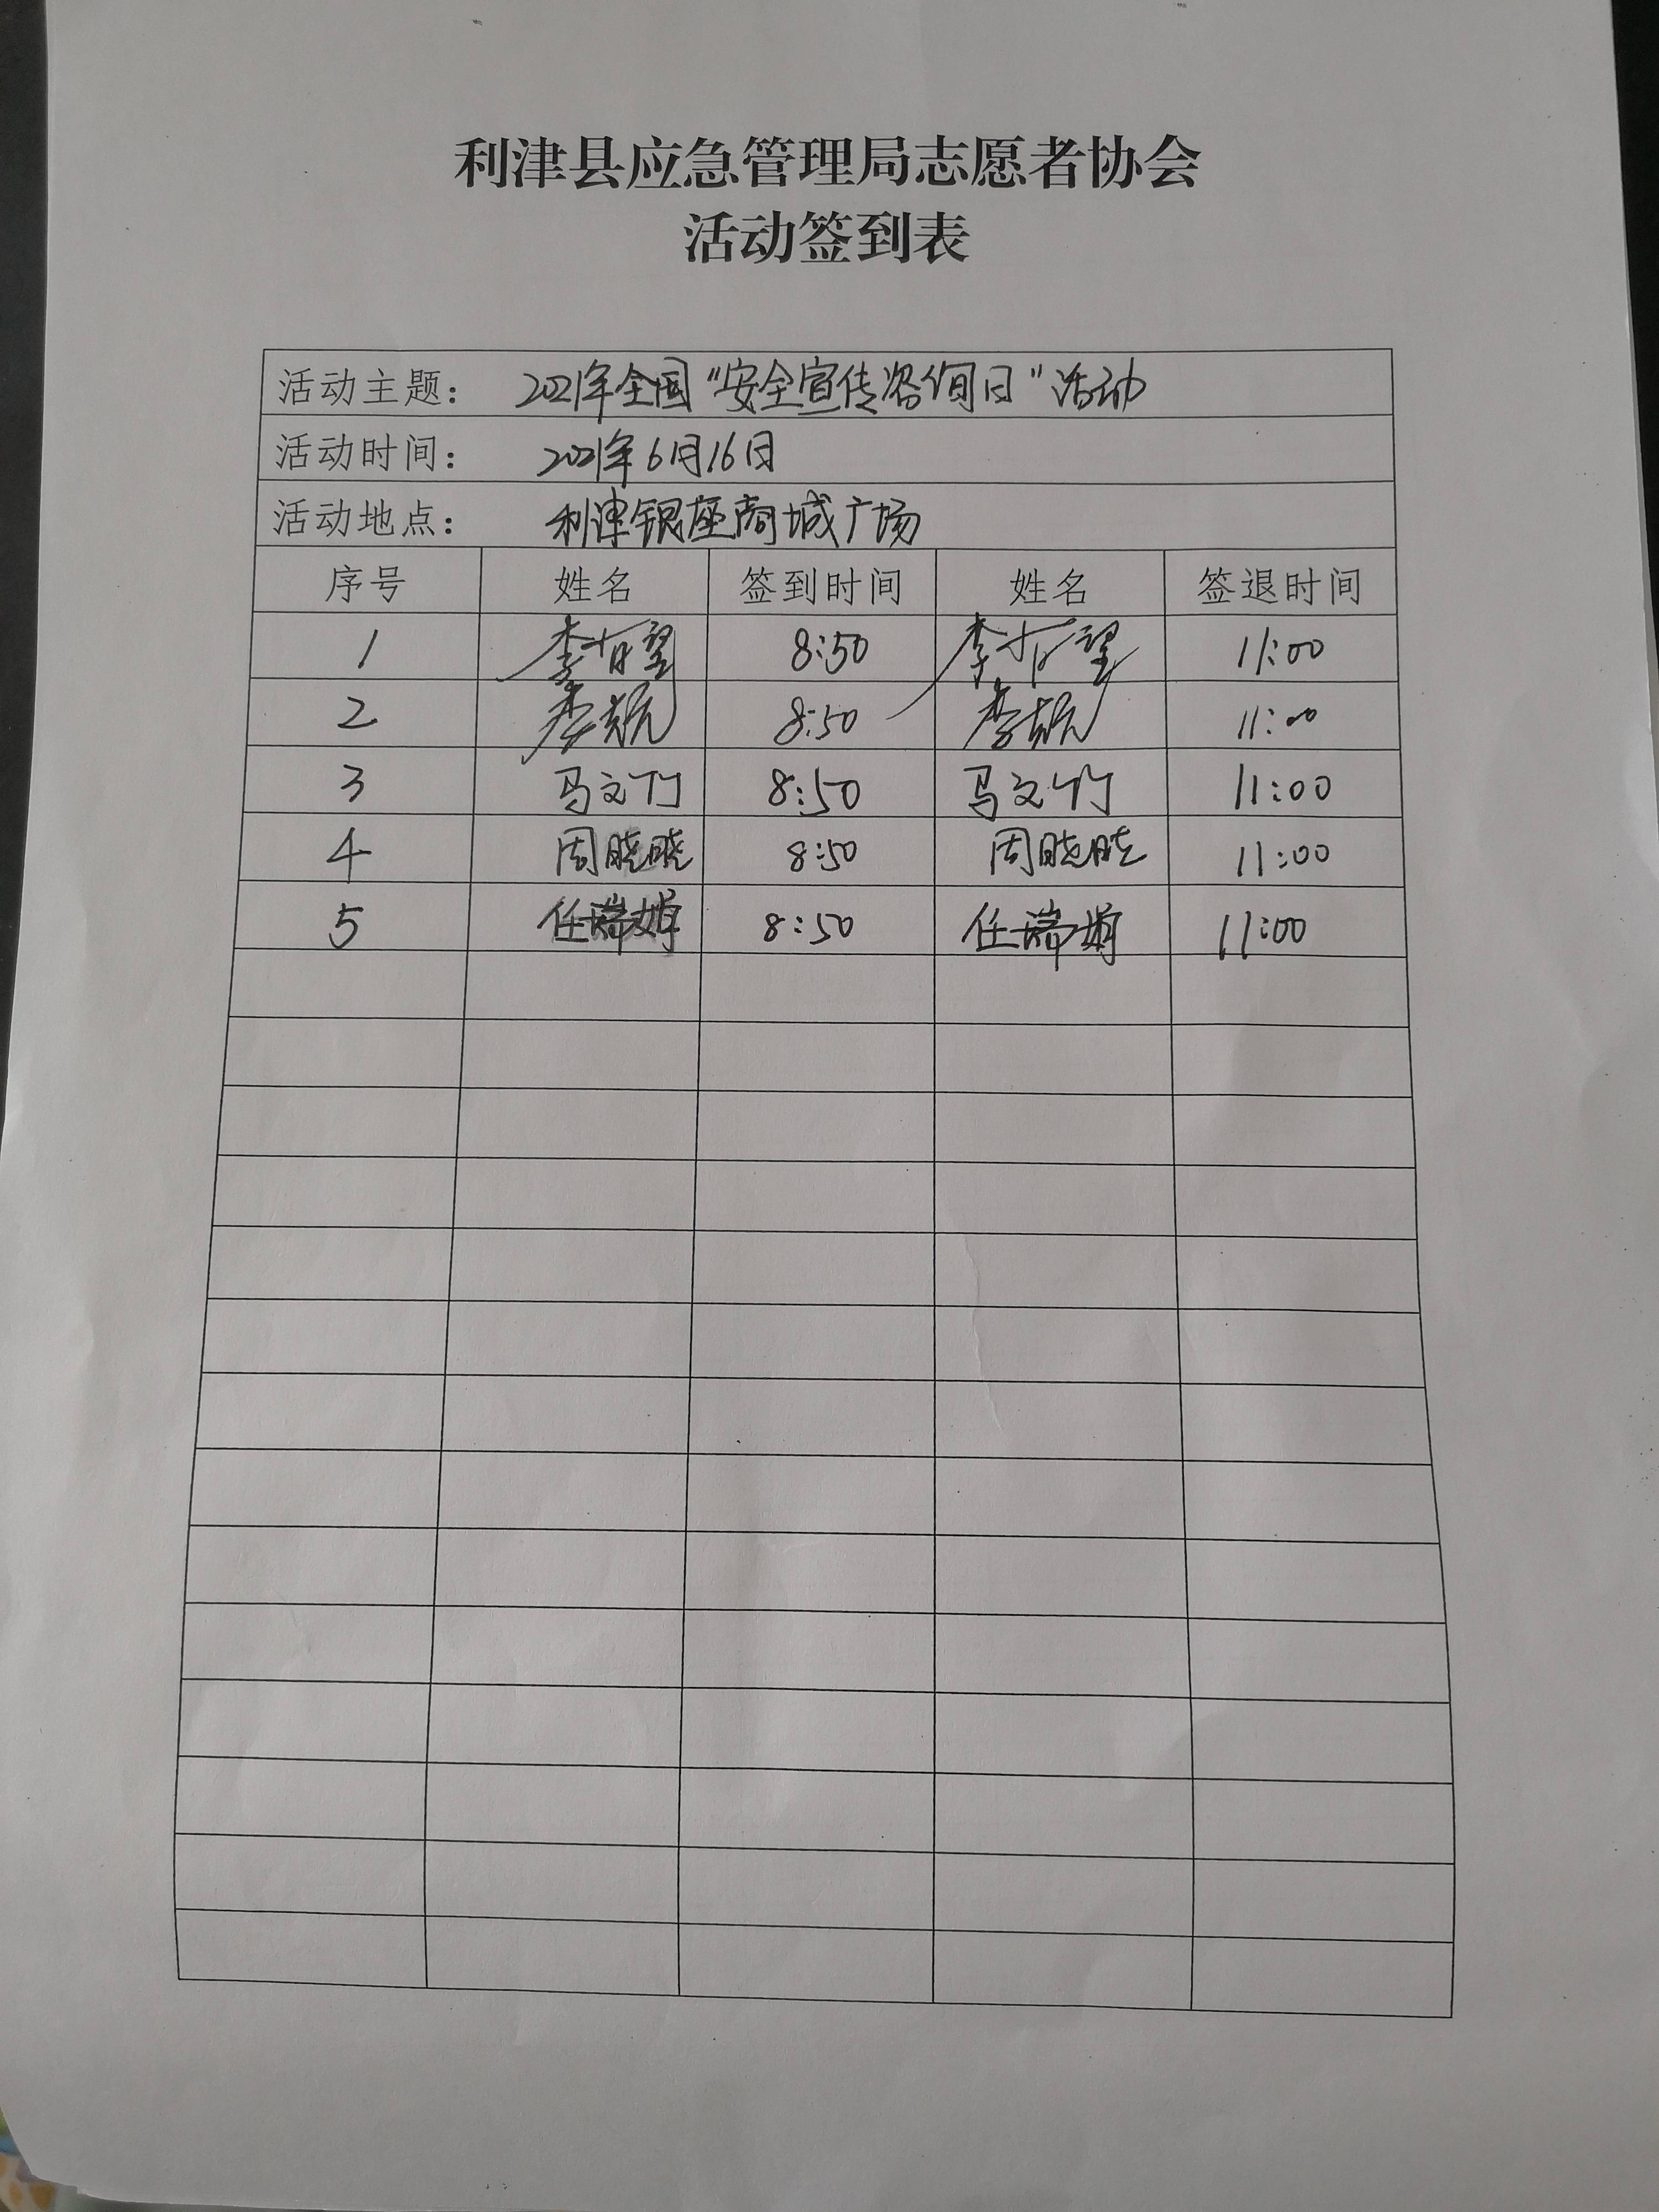 利津县应急管理局志愿者协会
活动签到表
活动主题： 2021年全国“安全宣传咨询日”活动
活动时间： 2021年6月16日
活动地点： 利津银座商城广场
序号 姓名 签到时间 姓名 签退时间
1 8:50 11:00
2 8:50 11:00
3 马文竹 8:50 马文竹 11:00
4 周晓晓 8:50 周晓晓 11:00
5 任瑞娟 8:50 任瑞娟 11:00